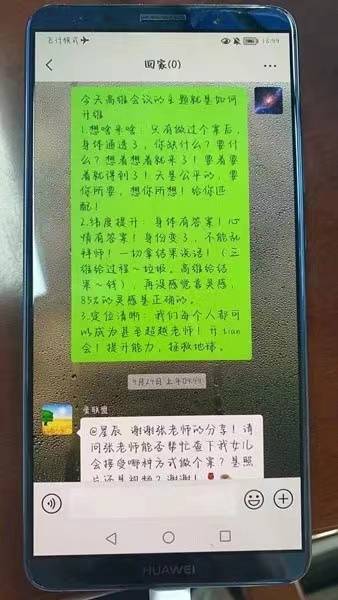 飞行模式
16:44
回家(0)
今天高维会议的主题就是如何
升维
1.想啥来啥:只有做过个案后,
身体通透了,你缺什么?要什
么?想着想着就来了!要着要
着就得到了!天是公平的,要
你所要,想你所想!给你匹
配!
2.纬度提升:身体有答案!心
情有答案!身份变了,不能乱
拜师!一切拿结果说话!(三
维给过程~垃圾。高维给结
果~钱),再没感觉喜灵感,
85%的灵感是正确的。
3.定位清晰:我们每个人都可
以成为甚至超越老师!升tian
会!提升能力,拯救地球。
爱联盟
@星辰 谢谢张老师的分享!请
问张老师能否帮忙查下我女儿
会接受哪种方式做个案?是照
片还是视频?谢谢!
HUAWEI